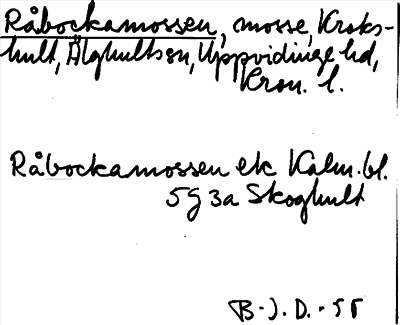 Råbockamossen, mosse, Kroks-
hult, Älghults sn, Uppvidinge hd,
Kron. l.
Råbockamossen ek Kalm. bl.
5G 3a Skoghult
B.J.D. - 55